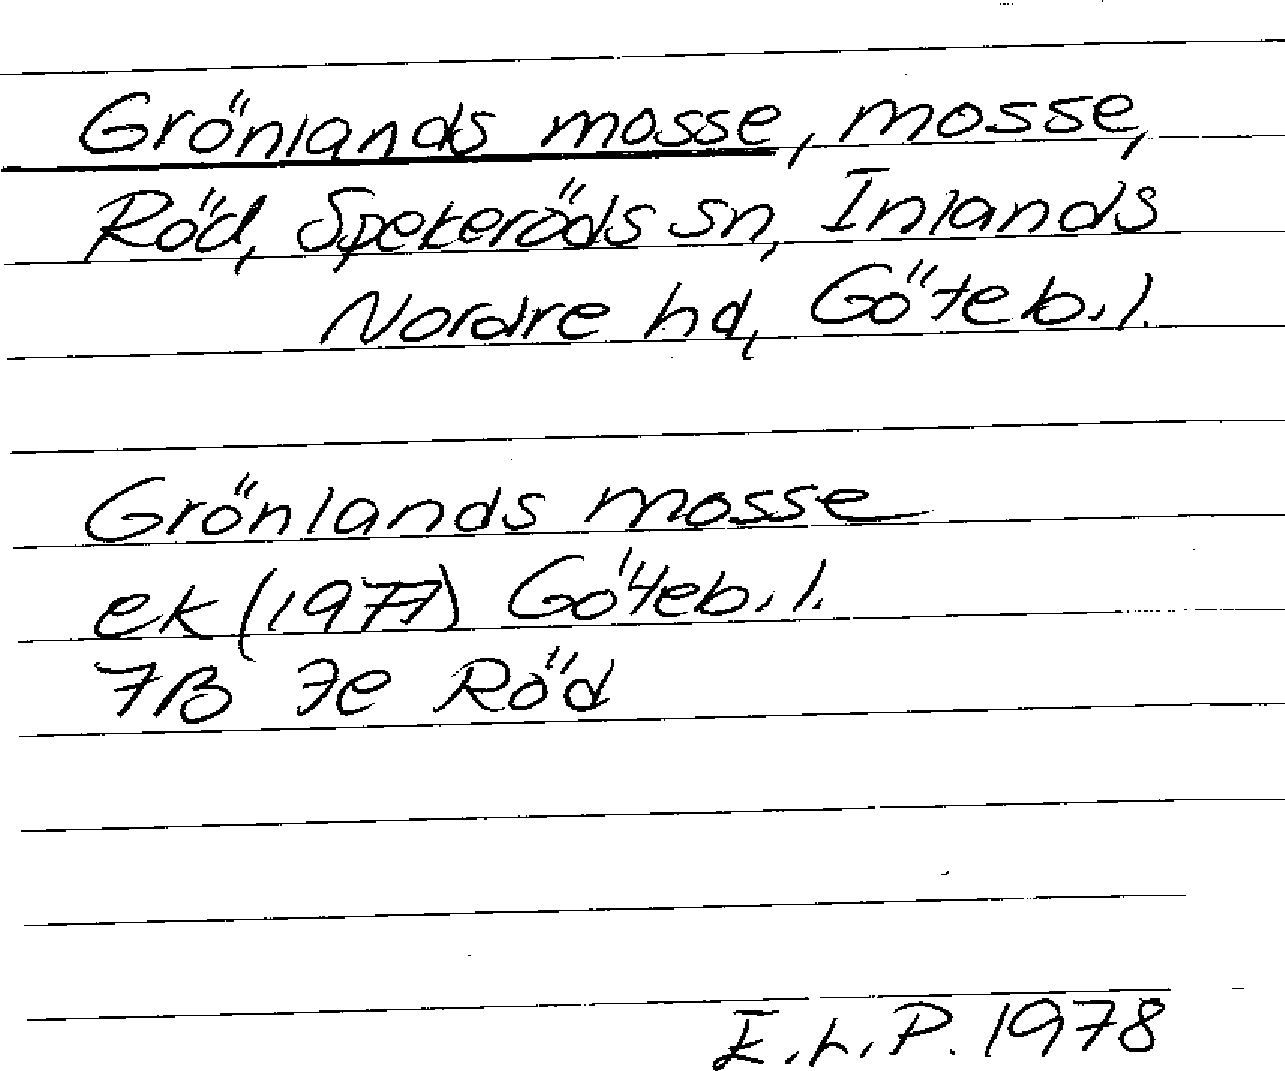 Grönlands mosse, mosse,
Röd, Spekeröds sn, Inlands
Nordre hd, Göteb.l.
Grönlands mosse
ek (1977) Göteb.l.
7B 7e Röd
E.L.P. 1978